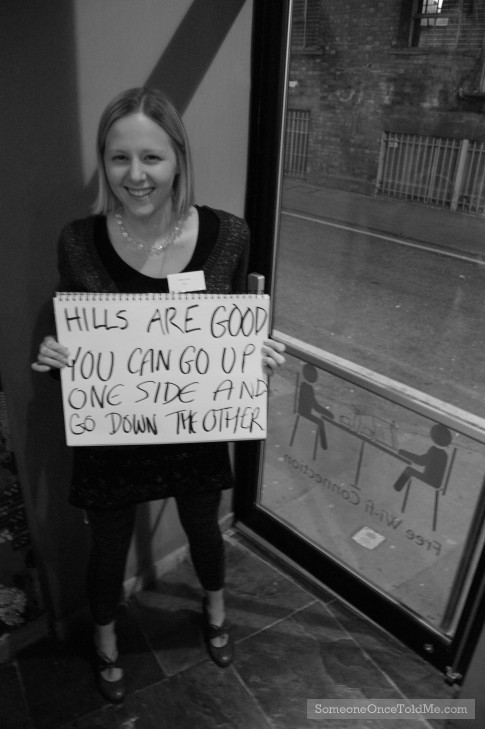 HILLS ARE GOOD
YOU CAN GO UP
ONE SIDE AND
GO DOWN THE OTHER
Free Wi-fi Connection
SomeoneOnceToldMe.com